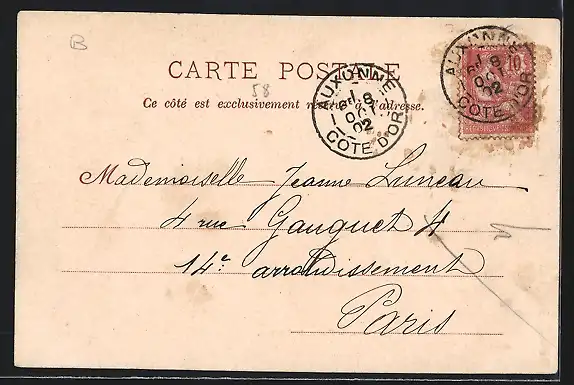 B
CARTE POSTALE
58
Ce côté est exclusivement réservé à l'adresse.
AUXONNE
8
OCT
02
COTE D'OR
AUXONNE
8
OCT
02
COTE D'OR
10
Mademoiselle Jeanne Luneau
4 rue Gauguet 4
14e arrondissement
Paris